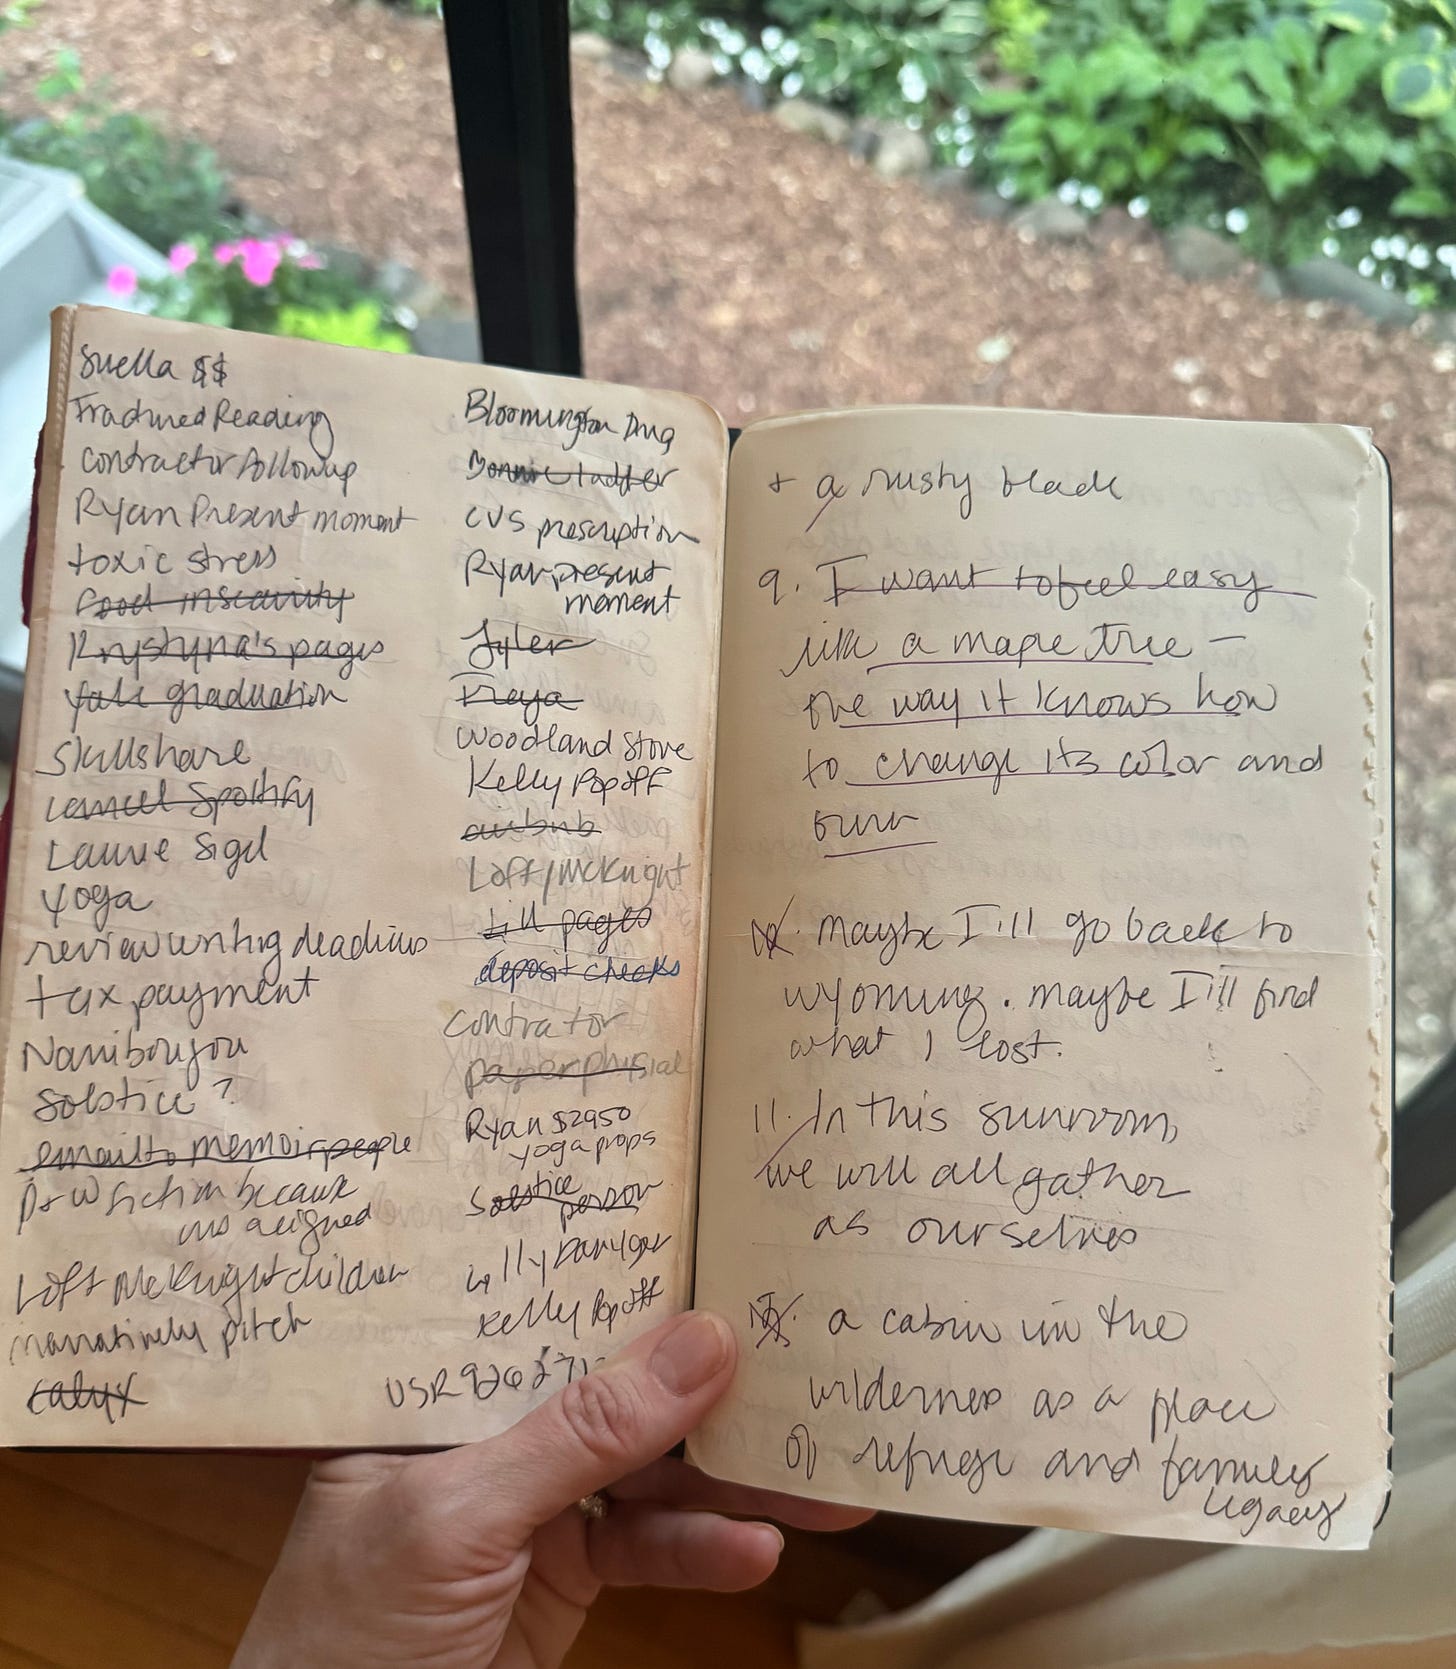 Suella $$
Fractured Reading
contractor followup
Ryan Present moment
toxic stress
food insecurity
Krystyna's pages
yale graduation
Skillshare
cancel Spotify
Laurie Sigel
yoga
review writing deadlines
tax payment
Naniboujou
Solstice?
email to memoir people
P+W fiction because
Loft McKnight children
narratively pitch
calyx
Bloomington Drug
Bonnie ladder
CVS prescription
Ryan present
moment
Tyler
Freya
Woodland Stove
Kelly Popoff
airbnb
Loft/McKnight
till pages
deposit checks
contrator
paper physical
Ryan $2950
yoga props
Solstice
person
Kelly Popoff
+ a rusty blade
9. I want to feel easy
like a maple tree –
the way it knows how
to change its color and
burn
maybe I'll go back to
wyoming. maybe I'll find
what I lost.
11. In this sunroom,
we will all gather
as ourselves
a cabin in the
wilderness as a place
of refuge and family
legacy